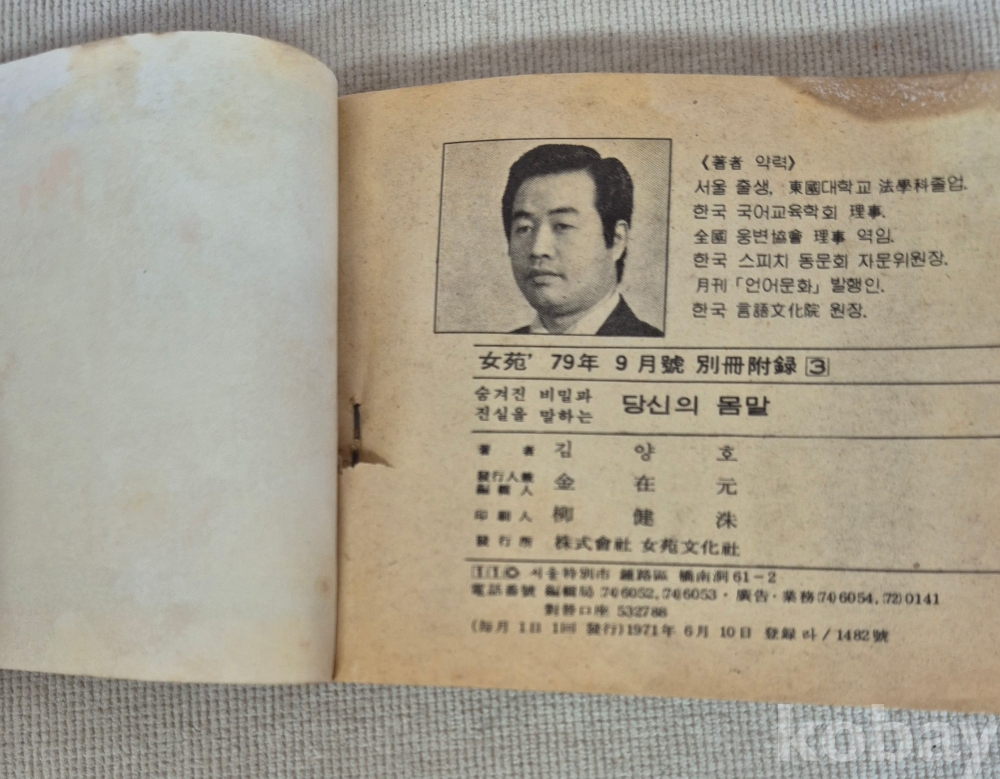 《著者 약력》
서울 출생, 東國대학교 法學科졸업.
한국 국어교육학회 理事.
全國 웅변協會 理事 역임.
한국 스피치 동문회 자문위원장.
月刊「언어문화」발행인.
한국 言語文化院 원장.
女苑' 79年 9月號 別冊附録 3
숨겨진 비밀과
진실을 말하는 당신의 몸말
著者 김양호
發行人兼
編輯人 金在元
印刷人 柳健洙
發行所 株式會社 女苑文化社
110 서울特別市 鍾路區 橋南洞 61-2
電話番號 編輯局 74)6052, 74)6053·廣告·業務 (74)6054, (72)0141
對替口座 532788
(每月 1日 1回 發行) 1971年 6月 10日 登録 라/1482號
kobay